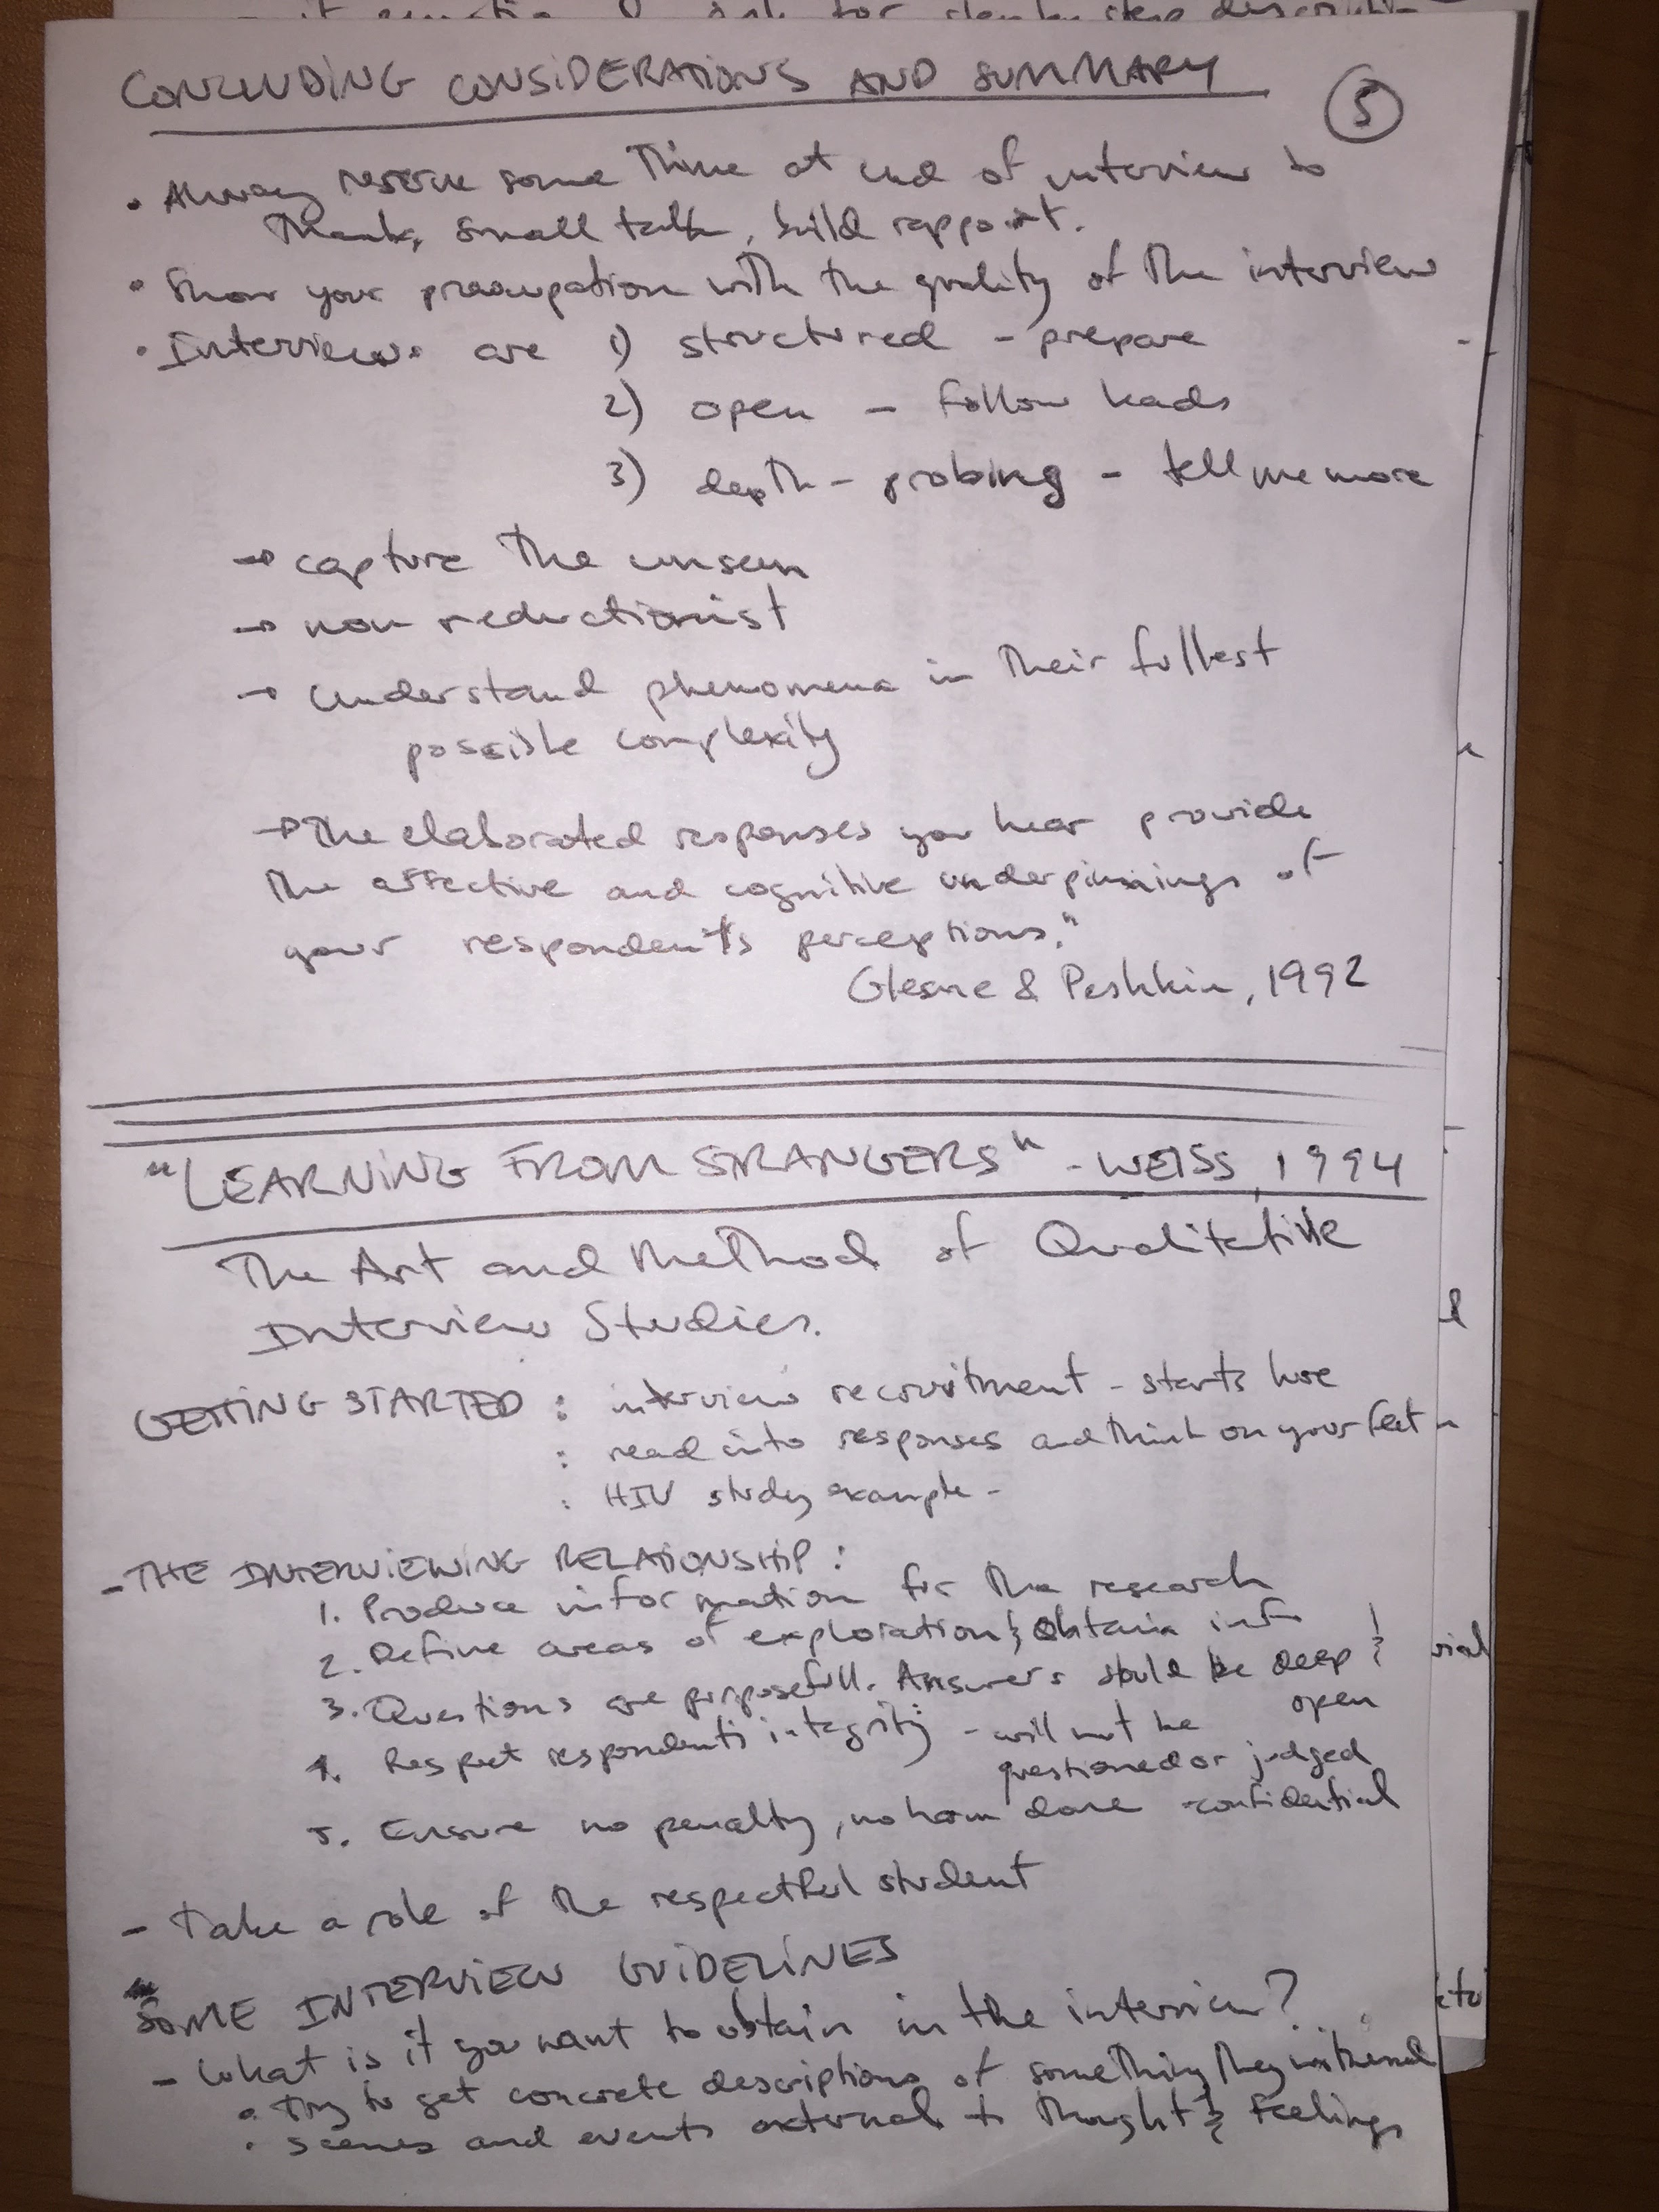 CONCLUDING CONSIDERATIONS AND SUMMARY
5
• Always reserve some time at end of interview to
thank, small talk, build rapport.
• Show your preocupation with the quality of the interview
• Interviews are 1) structured - prepare
2) open - follow leads
3) depth - probing - tell me more
→ capture the unseen
→ non reductionist
→ understand phenomena in their fullest
possible complexity
→ The elaborated responses you hear provide
the affective and cognitive underpinnings of
your respondent's perceptions."
Glesne & Peshkin, 1992
"LEARNING FROM STRANGERS" - WEISS, 1994
The Art and Method of Qualitative
Interview Studies.
GETTING STARTED : interview recruitment - starts here
: read into responses and think on your feet
: HIV study example -
- THE INTERVIEWING RELATIONSHIP :
1. Produce information for the research
2. Define areas of exploration & obtain info
3. Questions are purposefull. Answers should be deep &
open
4. Respect respondent's integrity - will not be
questioned or judged
5. Ensure no penalty, no harm done - confidential
- Take a role of the respectful student
SOME INTERVIEW GUIDELINES
- What is it you want to obtain in the interview?
• Try to get concrete descriptions of something they witnessed
• scenes and events external to thought & feelings